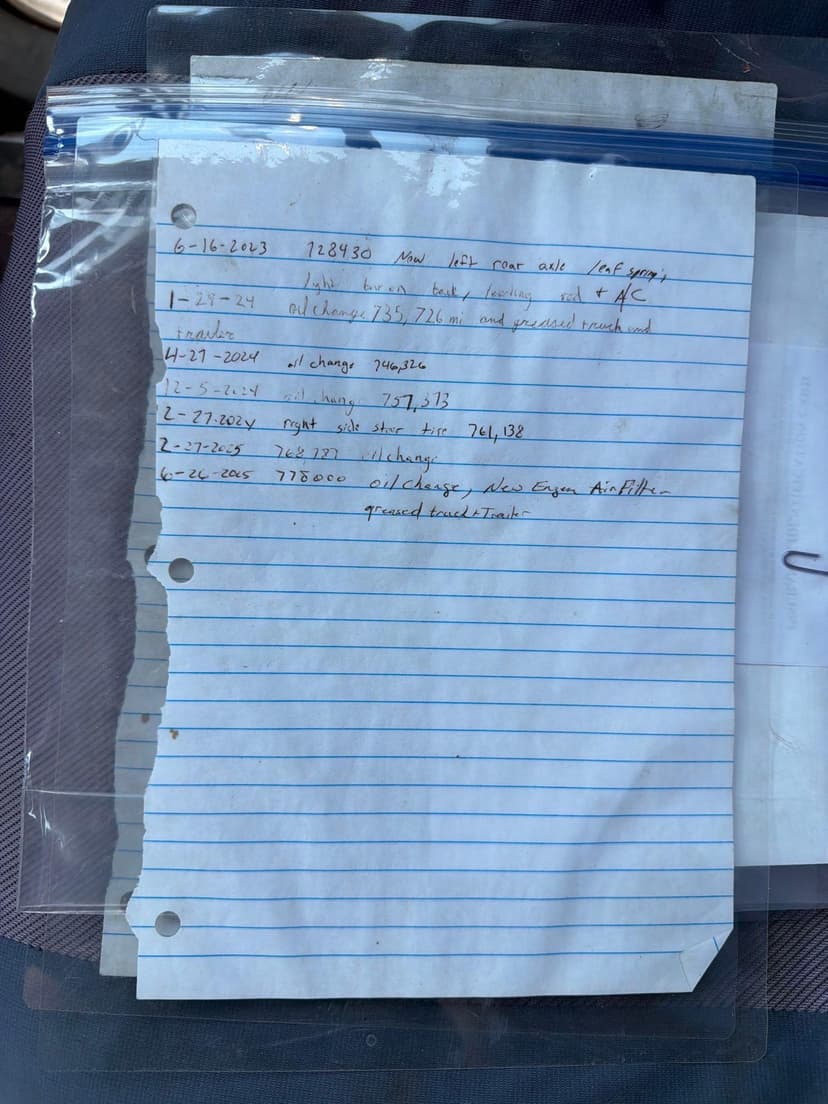 6-16-2023 728430 New left rear axle leaf spring,
light bar on back, leveling rod + A/C
1-28-24 oil change 735,726 mi and greased truck and
trailer
4-27-2024 oil change 746,326
12-5-2024 oil chang 757,373
2-27-202y right side ster tire 761,138
2-27-2025 768 787 oil change
6-26-2025 778000 oil Change, New Engen Air Filter
greased truck + Trailer